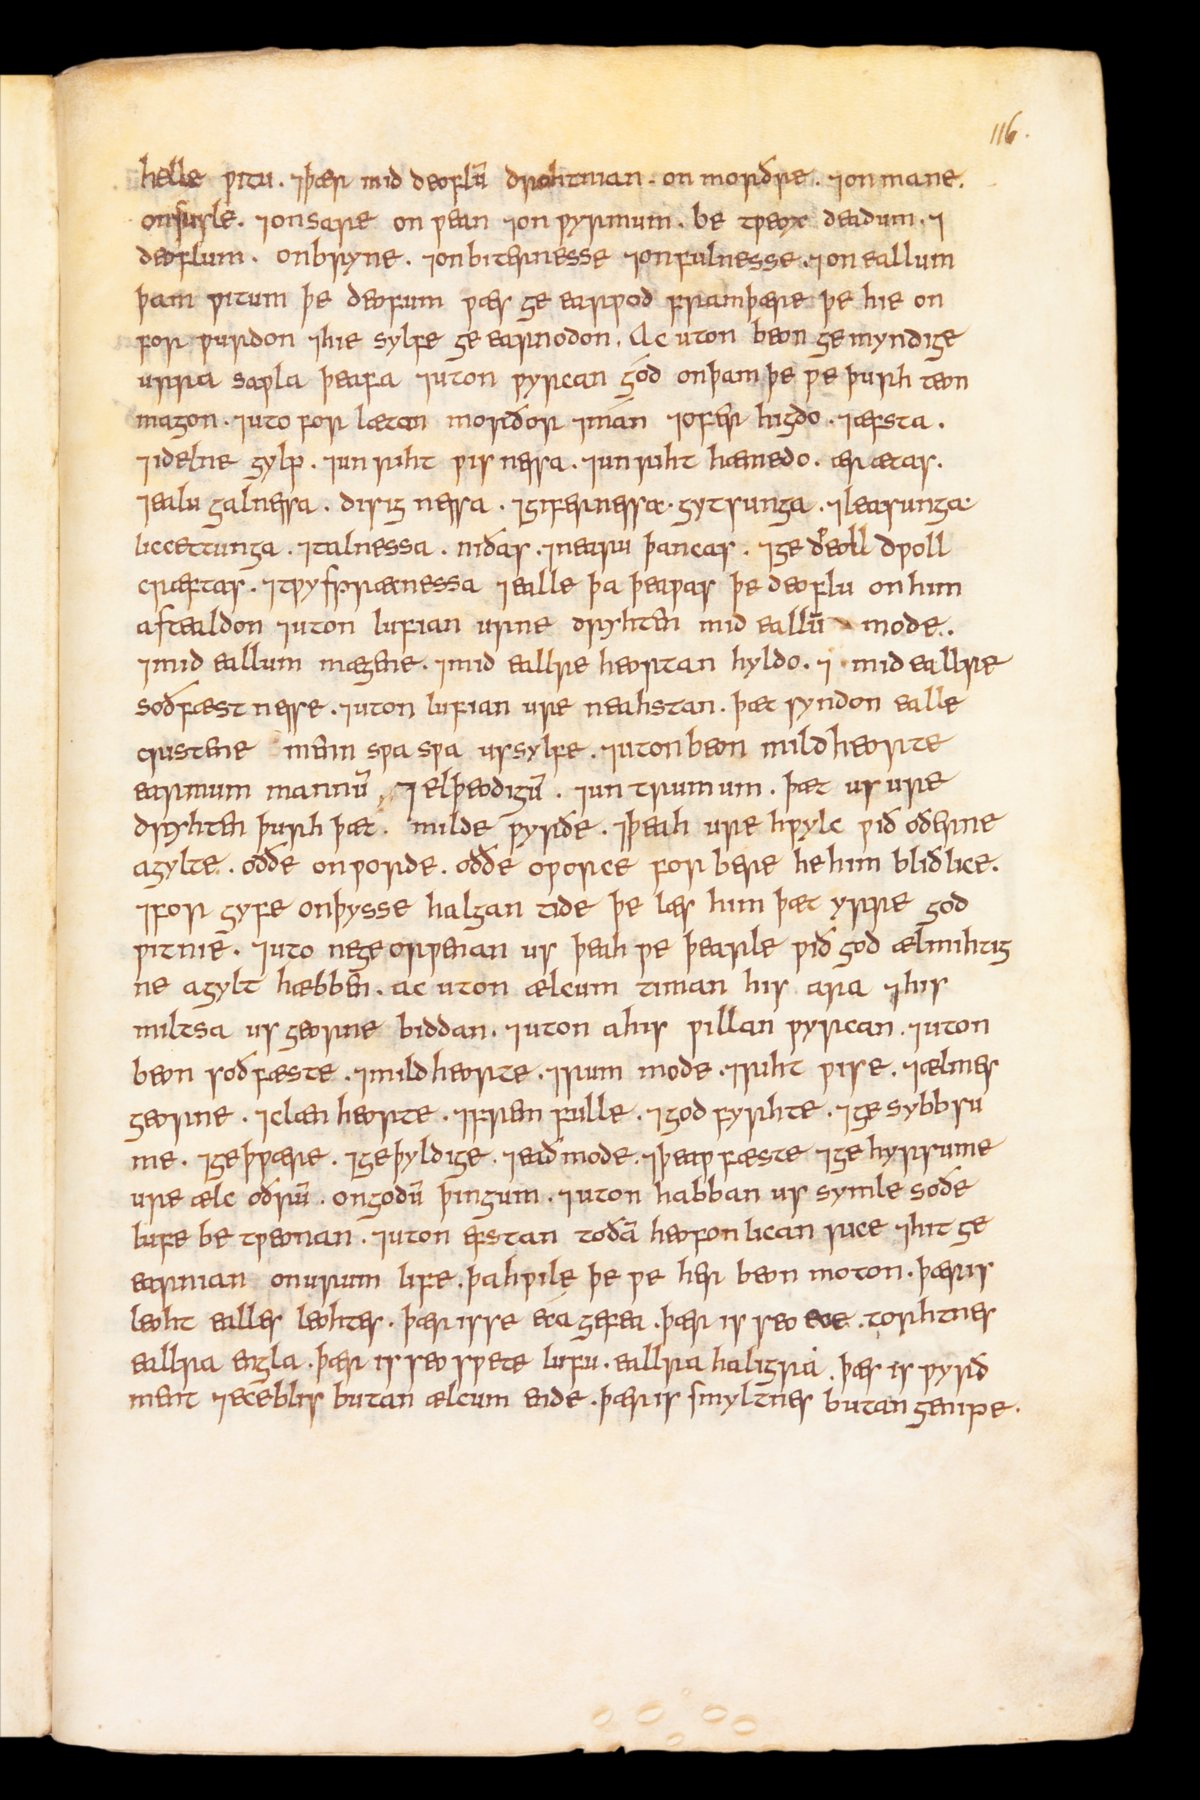 116.
helle ƿitu. ⁊þær mid deoflū drohtnian. on morðre. ⁊on mane.
onsusle. ⁊on sare on ƿean ⁊on ƿyrmum. be tƿeox deadum. ⁊
deoflum. onbryne. ⁊onbiternesse ⁊onfulnesse. ⁊on eallum
þam ƿitum þe deofum ƿæs ge earƿod framþære þe hie on
for ƿurdon ⁊hie sylfe ge earnodon. Ac uton beon ge myndige
urra saƿla þearfa ⁊uton ƿyrcan gód onþam þe ƿe þurh teon
magon. ⁊uto for læten morðor ⁊mán ⁊ofer higdo. ⁊æfsta.
⁊idelne gylp. ⁊un riht ƿis nessa. ⁊un riht hæmedo. ær ætas.
⁊ealu galnessa. disig nessa. ⁊gifernessæ. gytsunga. ⁊leasunga
liccettunga. ⁊talnessa. niðas. ⁊nearu þancas. ⁊ge dƿoll
cræftas. ⁊tƿyspræcnessa ⁊ealle þa þeaƿas þe deoflu on him
astealdon ⁊uton lufian urne dryhten mid eallū mode.
⁊mid eallum mægene. ⁊mid ealre heortan hyldo. ⁊ mid ealre
soðfæst nesse. ⁊uton lufian ure neahstan. þæt syndon ealle
cristene menn sƿa sƿa us sylfe. ⁊uton beon mildheorte
earmum mannū ⁊ elþeodigū. ⁊un trumum. þæt us ure
dryhten þurh þæt. milde ƿyrðe. ⁊þeah ure hƿylc ƿið oðerne
agylte. oððe on ƿorde. oððe oƿorce for bere he him bliðlice.
⁊for gyfe onþysse halgan tide þe læs him þæt yrre god
ƿitnie. ⁊uto nege orƿenan us þeah ƿe þearle ƿið god ælmihtig
ne agylt hæbben. ac uton ælcum timan his ara ⁊his
miltsa us georne biddan. ⁊uton a his ƿillan ƿyrcan. ⁊uton
beon soðfæste. ⁊mildheorte. ⁊rum mode. ⁊riht ƿise. ⁊ælmes
georne. ⁊clæn heorte. ⁊frem fulle. ⁊god fyrhte. ⁊ge sybbsu
me. ⁊geþƿære. ⁊geþyldige. ⁊eaðmode. ⁊þeaƿ fæste ⁊ge hyrsume
ure ælc oðrū. ongodū þingum. ⁊uton habban us symle soðe
lufe be tƿeonan. ⁊uton efstan toðā heofonlican rice ⁊hit ge
earnian onurum life. þahƿile þe ƿe her beon moton. þær is
leoht ealles leohtes. þær is se eca gefea. þær is seo ece. torhtnes
eallra engla. þær is seo sƿete lufu. eallra haligra. þær is ƿyrð
ment ⁊eceblis butan ælcum ende. þær is smyltnes butan genipe.